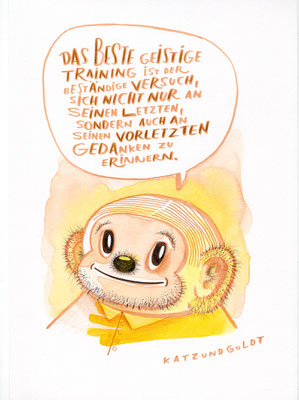 DAS BESTE GEISTIGE
TRAINING IST DER
BESTÄNDIGE VERSUCH,
SICH NICHT NUR AN
SEINEN LETZTEN,
SONDERN AUCH AN
SEINEN VORLETZTEN
GEDANKEN ZU
ERINNERN.
KATZUNDGOLDT